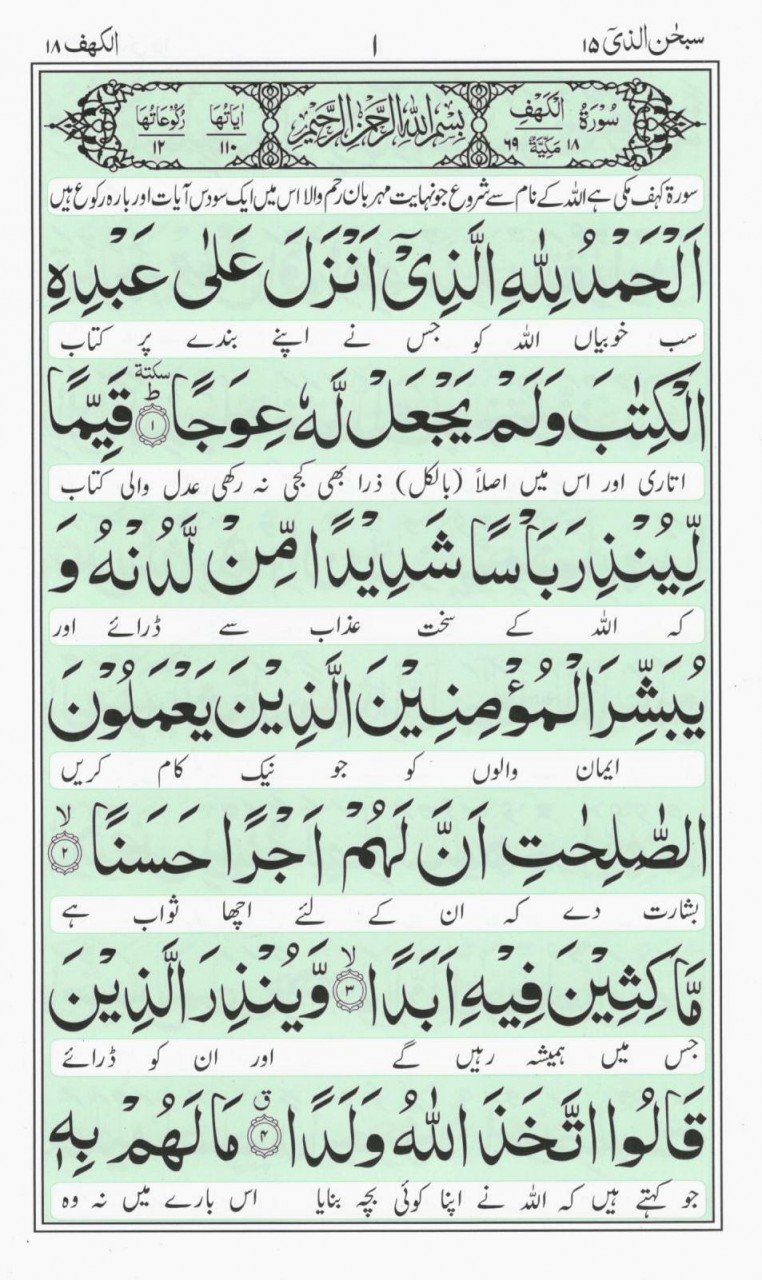 سبحٰن الذیٓ ۱۵
۱
الکهف ۱۸
سُوْرَةُ الْكَهْفِ
۱۸ مَكِّيَّةٌ ۶۹
بِسْمِ اللّٰهِ الرَّحْمٰنِ الرَّحِيْمِ
اٰيَاتُهَا ۱۱۰
رُكُوْعَاتُهَا ۱۲
سورة کہف مکی ہے اللہ کے نام سے شروع جو نہایت مہربان رحم والا اس میں ایک سو دس آیات اور بارہ رکوع ہیں
اَلْحَمْدُ لِلّٰهِ الَّذِيْٓ اَنْزَلَ عَلٰى عَبْدِهِ
سب خوبیاں اللہ کو جس نے اپنے بندے پر کتاب
الْكِتٰبَ وَلَمْ يَجْعَلْ لَّهٗ عِوَجًا ؕ سكتة ۱ قَيِّمًا
اتاری اور اس میں اصلاً (بالکل) ذرا بھی کجی نہ رکھی عدل والی کتاب
لِّيُنْذِرَ بَاْسًا شَدِيْدًا مِّنْ لَّدُنْهُ وَ
کہ اللہ کے سخت عذاب سے ڈرائے اور
يُبَشِّرَ الْمُؤْمِنِيْنَ الَّذِيْنَ يَعْمَلُوْنَ
ایمان والوں کو جو نیک کام کریں
الصّٰلِحٰتِ اَنَّ لَهُمْ اَجْرًا حَسَنًا ۙ ۲
بشارت دے کہ ان کے لئے اچھا ثواب ہے
مَّاكِثِيْنَ فِيْهِ اَبَدًا ۙ ۳ وَّيُنْذِرَ الَّذِيْنَ
جس میں ہمیشہ رہیں گے اور ان کو ڈرائے
قَالُوا اتَّخَذَ اللّٰهُ وَلَدًا ق ۴ مَا لَهُمْ بِهٖ
جو کہتے ہیں کہ اللہ نے اپنا کوئی بچہ بنایا اس بارے میں نہ وہ